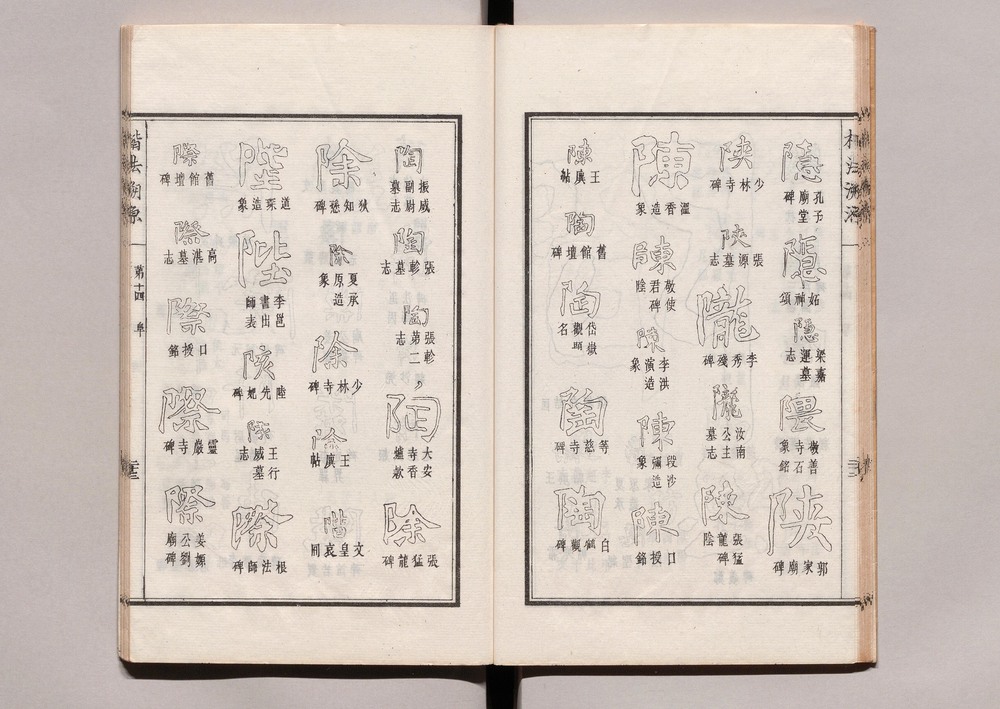 隱
孔子廟堂碑
隱
妬神頌
隱
梁嘉運墓志
隈
敬善寺石像銘
陝
郭家廟碑
陝
少林寺碑
陝
張源墓志
隴
李秀殘碑
隴
汝南公主墓志
陳
張猛龍碑陰
陳
溫香造象
陳
敬使君碑陰
陳
李洪演造象
陳
段沙彌造象
陳
口授銘
陳
王廙帖
陶
舊館壇碑
陶
岱嶽觀題名
陶
等慈寺碑
陶
白鶴觀碑
楷法溯源
第十四
阜
陶
振威副尉墓志
陶
張軫墓志
陶
張軫第二志
陶
大安寺香爐款
除
張猛龍碑
除
狄知愻碑
除
夏承原造象
除
少林寺碑
除
王廙帖
階
文皇哀冊
陛
道琛造象
陛
李邕書出師表
陔
陸先妃碑
際
王行威墓志
際
根法師碑
際
舊館壇碑
際
高湛墓志
際
口授銘
際
靈巖寺碑
際
姜嫄公劉廟碑
楷法溯源
第十四
阜